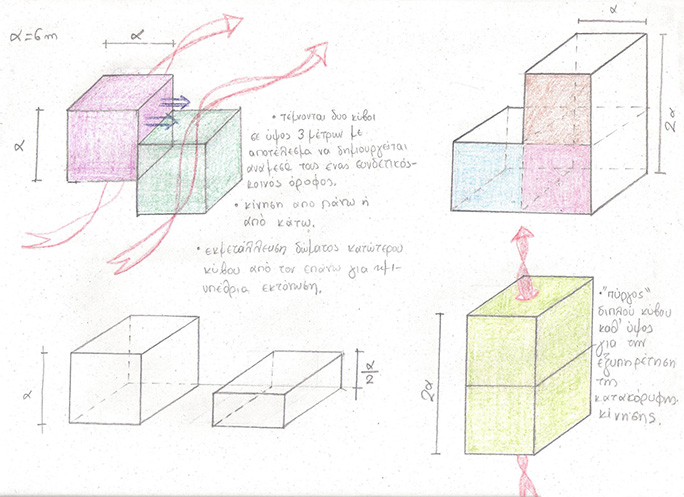 α=6m
α
α
• τέμνονται δυο κύβοι
σε ύψος 3 μέτρων με
αποτέλεσμα να δημιουργείται
αναμεσά τους ένας συνδετικός-
κοινός όροφος.
• κίνηση από πάνω ή
από κάτω.
• εκμετάλλευση δώματος κατώτερου
κύβου από τον επάνω για ημι-
υπαίθρια εκτόνωση.
α
2α
α
α
2
2α
• "πύργος"
διπλού κύβου
καθ' ύψος
για την
εξυπηρέτηση
της
κατακόρυφης
κίνησης.